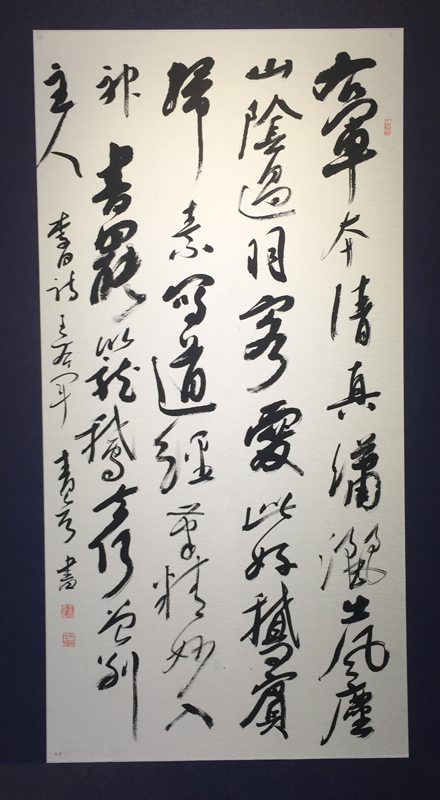 右軍本清真瀟灑出風塵
山陰過羽客愛此好鵝賓
掃素寫道經筆精妙入
神書罷籠鵝去何曾別
主人 李白詩王右軍 書